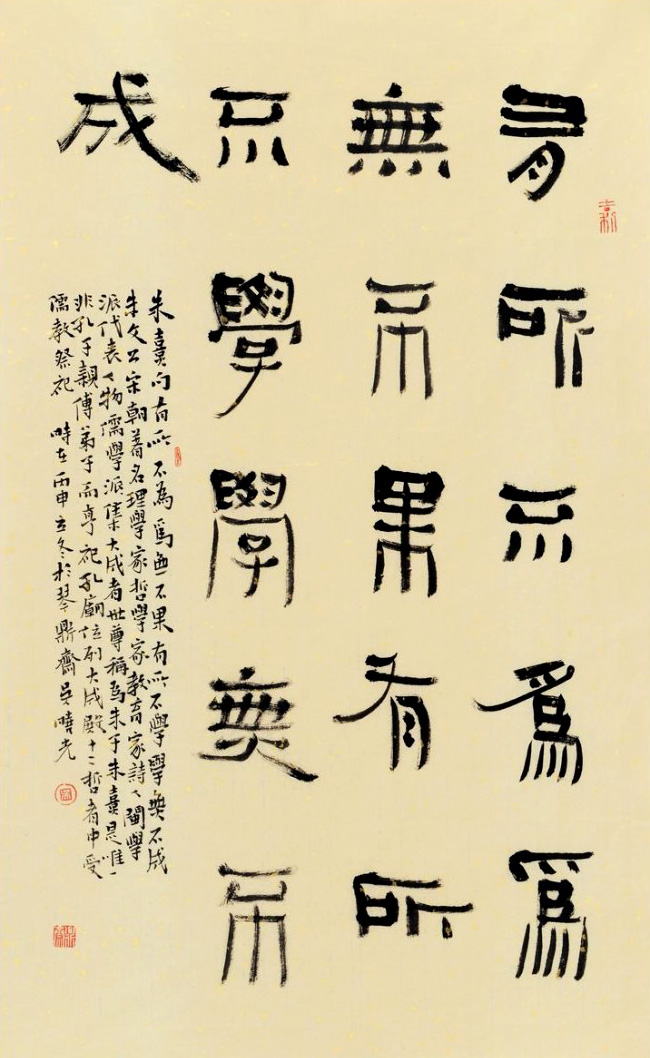 有所不爲爲
無不果有所
不學學無不
成
朱熹句有所不為爲無不果有所不學學無不成
朱文公宋朝著名理學家哲學家教育家詩人閩學
派代表人物儒學派集大成者世尊稱為朱子朱熹是唯一
非孔子親傳弟子而享祀孔廟位列大成殿十二哲者中受
儒教祭祀 時在丙申立冬於琴鼎齋吳曉光